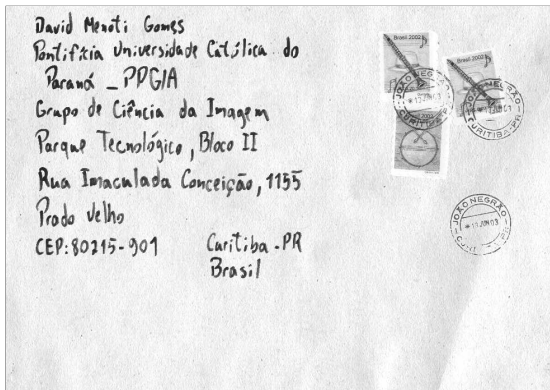 David Menoti Gomes
Pontifícia Universidade Católica do
Paraná - PPGIA
Grupo de Ciência da Imagem
Parque Tecnológico, Bloco II
Rua Imaculada Conceição, 1155
Prado Velho
CEP: 80215-901 Curitiba - PR
Brasil
Brasil 2002
Brasil 2002
JOÃO NEGRÃO
CURITIBA-PR
JOÃO NEGRÃO
CURITIBA-PR
JOÃO NEGRÃO